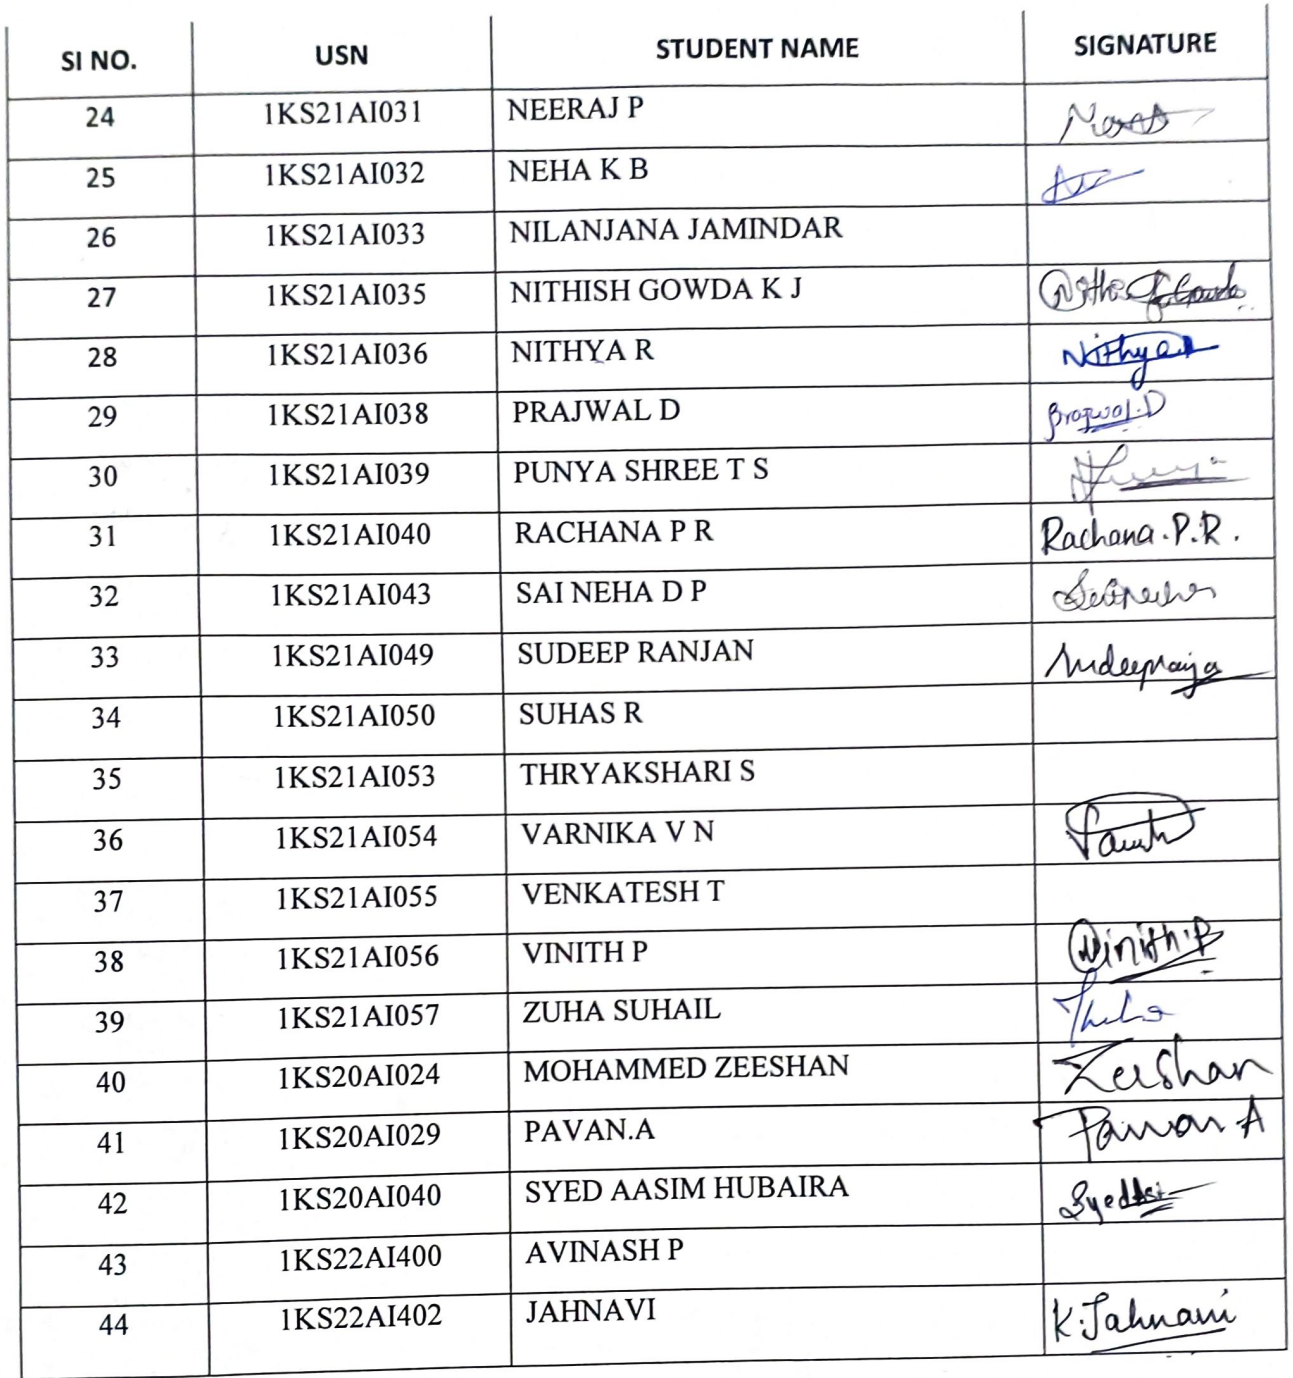 SI NO. USN STUDENT NAME SIGNATURE
24 1KS21AI031 NEERAJ P
25 1KS21AI032 NEHA K B
26 1KS21AI033 NILANJANA JAMINDAR
27 1KS21AI035 NITHISH GOWDA K J
28 1KS21AI036 NITHYA R Nithya
29 1KS21AI038 PRAJWAL D Prajwal.D
30 1KS21AI039 PUNYA SHREE T S
31 1KS21AI040 RACHANA P R Rachana.P.R.
32 1KS21AI043 SAI NEHA D P
33 1KS21AI049 SUDEEP RANJAN
34 1KS21AI050 SUHAS R
35 1KS21AI053 THRYAKSHARI S
36 1KS21AI054 VARNIKA V N
37 1KS21AI055 VENKATESH T
38 1KS21AI056 VINITH P Vinith.P
39 1KS21AI057 ZUHA SUHAIL
40 1KS20AI024 MOHAMMED ZEESHAN Zeeshan
41 1KS20AI029 PAVAN.A Pavan A
42 1KS20AI040 SYED AASIM HUBAIRA
43 1KS22AI400 AVINASH P
44 1KS22AI402 JAHNAVI K.Jahnavi